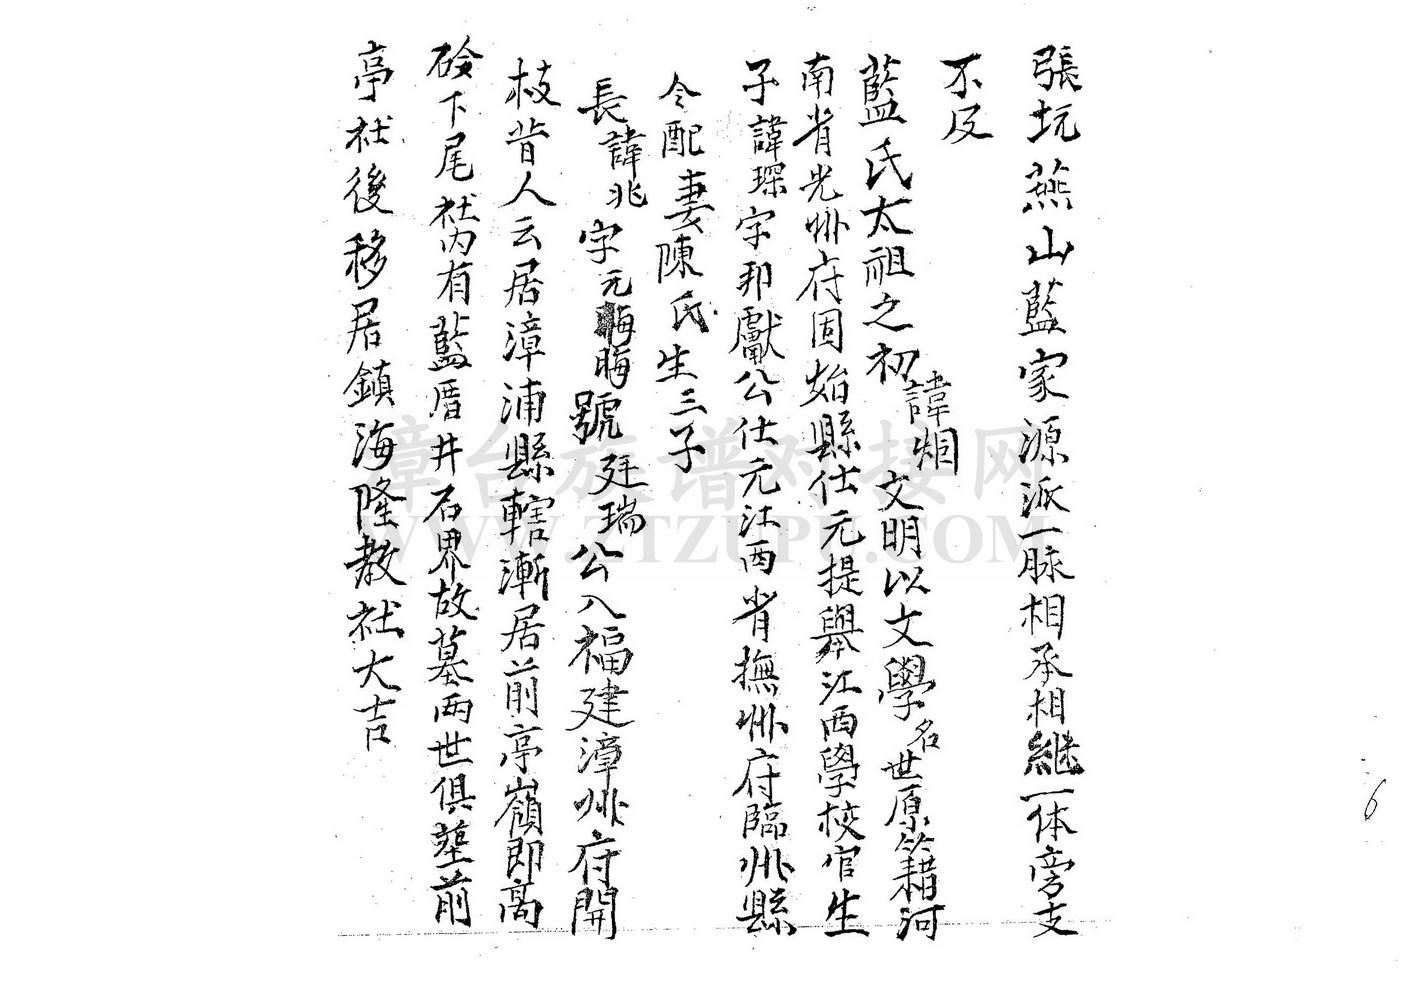 張坑燕山藍家源派一脉相承相繼一体旁支
不反
藍氏太祖之初諱烱文明以文學名世原籍河
南省光州府固始縣仕元提舉江西學校官生
子諱琛字邦獻公仕元江西省撫州府臨州縣
令配妻陳氏生三子
長諱兆字元晦號廷瑞公入福建漳州府開
枝昔人云居漳浦縣轄漸居前亭嶺即高
硷下尾社內有藍厝井石界故墓兩世俱塟前
亭社後移居鎮海隆教社大吉
6
漳台族谱对接网
WWW.ZTZUPU.COM